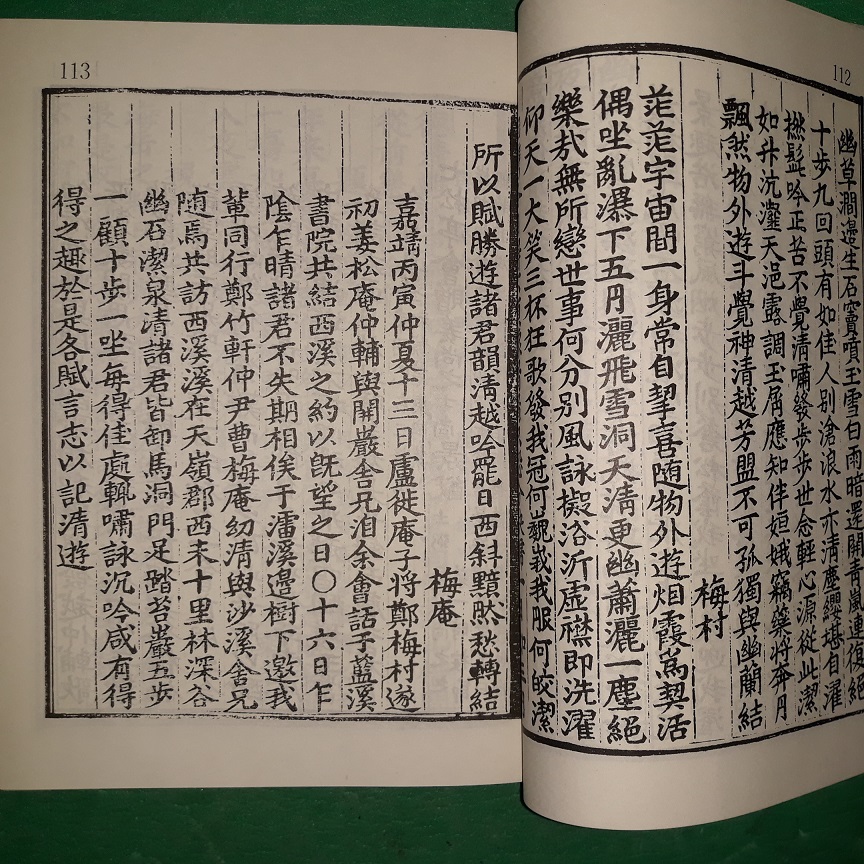 112
幽草澗邊生石竇噴玉雪白雨暗還開青嵐連復絕
十步九回頭有如佳人別滄浪水亦淸塵纓堪自濯
撚髭吟正苦不覺淸嘯發步步世念輕心源從此潔
如升沆瀣天浥露調玉屑應知伴姮娥竊藥將奔月
飄然物外遊斗覺神淸越芳盟不可孤獨與幽蘭結
梅村
茫茫宇宙間一身常自挈喜随物外遊烟霞爲契活
偶坐亂瀑下五月灑飛雪洞天淸更幽蕭灑一塵絕
樂哉無所戀世事何分別風詠擬浴沂虛襟即洗濯
仰天一大笑三杯狂歌發我冠何巍峩我服何皎潔
113
所以賦勝遊諸君韻淸越吟罷日西斜黯然愁轉結
梅庵
嘉靖丙寅仲夏十三日盧徙庵子將鄭梅村遂
初姜松庵仲輔與開巖舍兄洎余會話于藍溪
書院共結西溪之約以旣望之日〇十六日乍
陰乍晴諸君不失期相俟于濫溪邊樹下邀我
輩同行鄭竹軒仲尹曹梅庵幼淸與沙溪舍兄
随焉共訪西溪溪在天嶺郡西未十里林深谷
幽石潔泉淸諸君皆卸馬洞門足踏苔巖五步
一顧十步一坐每得佳處輒嘯詠沉吟咸有得
得之趣於是各賦言志以記淸遊